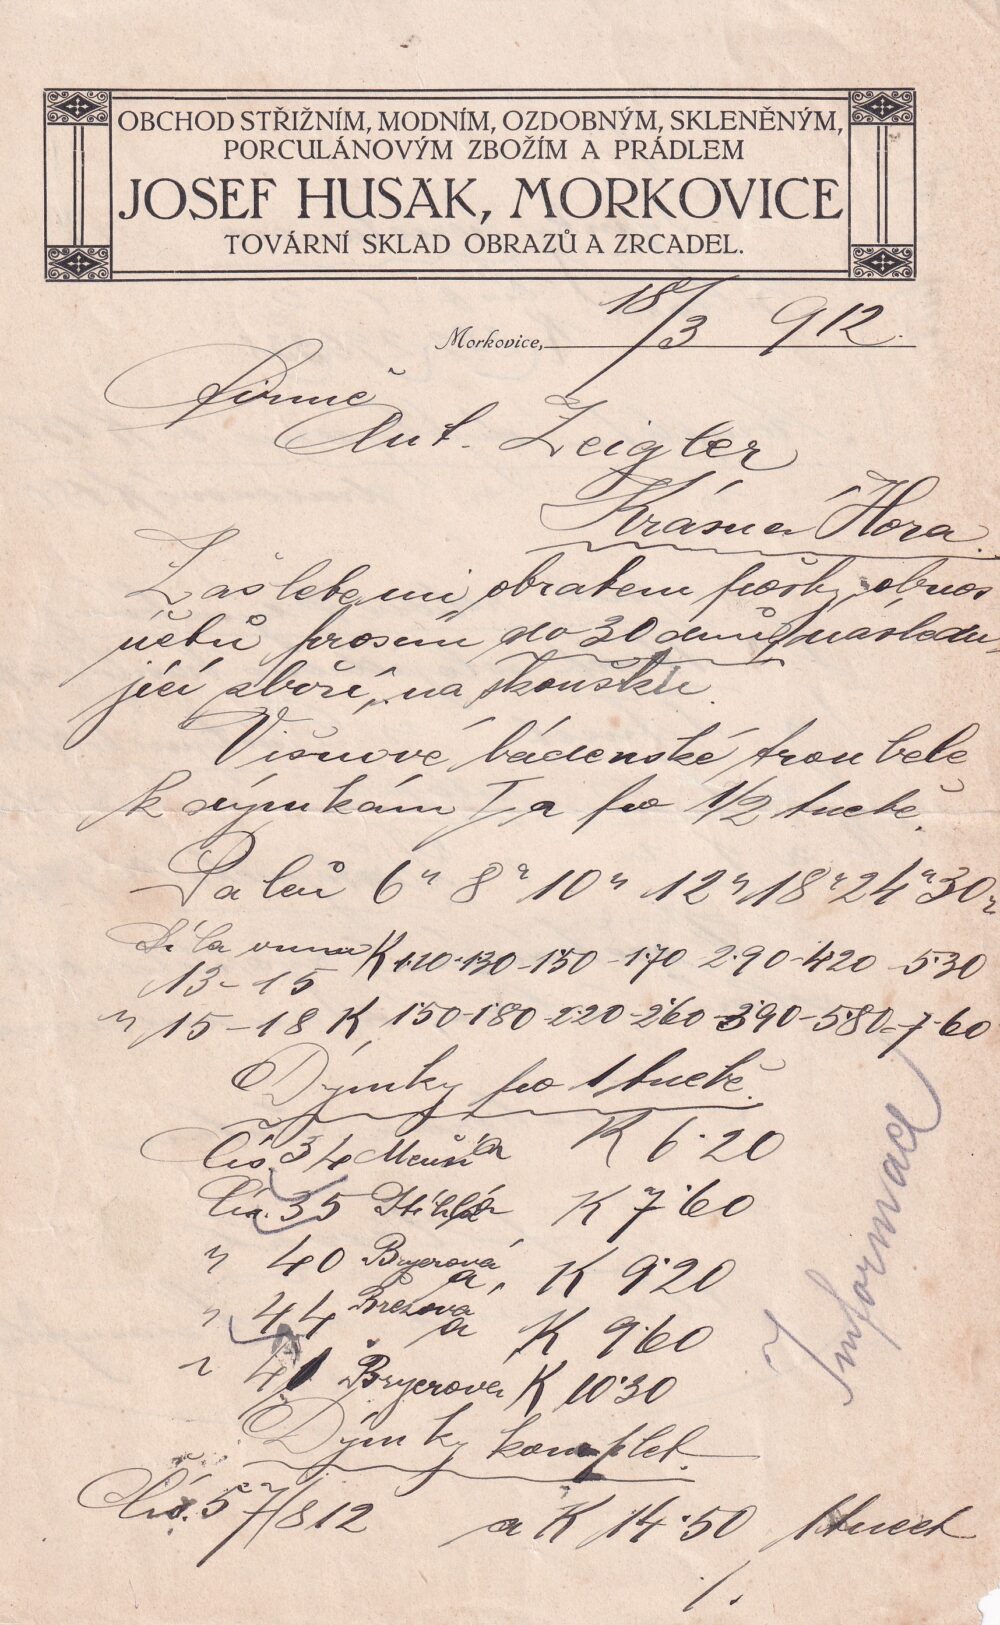 OBCHOD STŘIŽNÍM, MODNÍM, OZDOBNÝM, SKLENĚNÝM,
PORCULÁNOVÝM ZBOŽÍM A PRÁDLEM
JOSEF HUSÁK, MORKOVICE
TOVÁRNÍ SKLAD OBRAZŮ A ZRCADEL.
Morkovice, 18/3 912.
Firmě
Ant. Zeigler
Krásná Hora.
Zašlete mi obratem pošty, obnos
účtů prosím do 30 dnů, následu-
jící zboží, na zkoušku.
Višňové bádenské troubele
k dýmkám Ia po 1/2 tuctě.
Palců 6" 8" 10" 12" 18" 24" 30"
Síla 13-15 K 1·10-1·30-1·50-1·70 2·90-4·20 - 5·30
" 15-18 K 1·50-1·80 2·20-2·60-3·90-5·80-7·60
Dýmky po 1 tuctě.
Čís. 34 K 6·20
Čís. 35 K 7·60
" 40 Bryerová a, K 9·20
" 44 Březová a K 9·60
" 41 Bryerová K 10·30
Dýmky komplet
Čís. 57/812 a K 14·50 1 tucet
/.
Informace